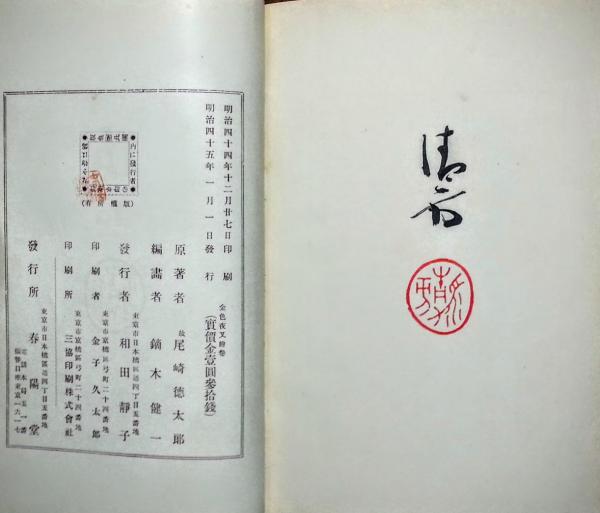 清方
明治四十四年十二月廿七日印刷
明治四十五年一月一日發行
金色夜叉繪巻
(實價金壹圓參拾錢)
原著者 故 尾崎德太郎
編畫者 鏑木健一
東京市日本橋區通四丁目五番地
發行者 和田靜子
東京市京橋區弓町二十四番地
印刷者 金子久太郎
東京市京橋區弓町二十四番地
印刷所 三協印刷株式會社
東京市日本橋區通四丁目五番地
發行所 春陽堂
電話本局五一番
振替口座東京一六一七
(版權所有)